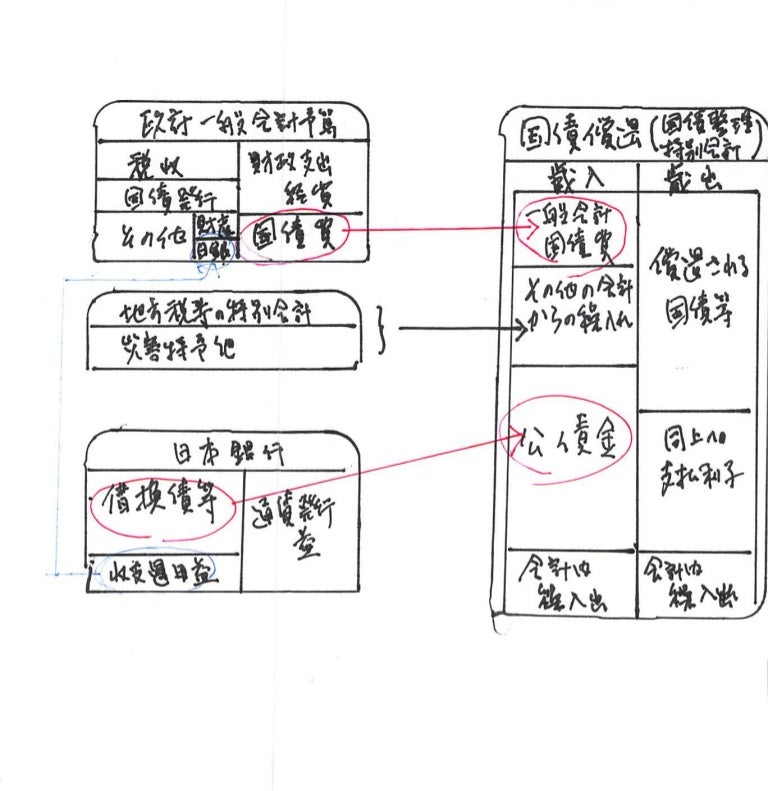 一般会計予算
税収
国債発行
その他
財政支出
経費
国債費
地方税等の特別会計
日本銀行
借換債等
通貨発行
益
国債償還(国債整理
特別会計)
歳入
歳出
一般会計
国債費
その他の会計
からの繰入れ
公債金
会計内
繰入出
償還される
国債等
同上の
支払利子
会計内
繰入出